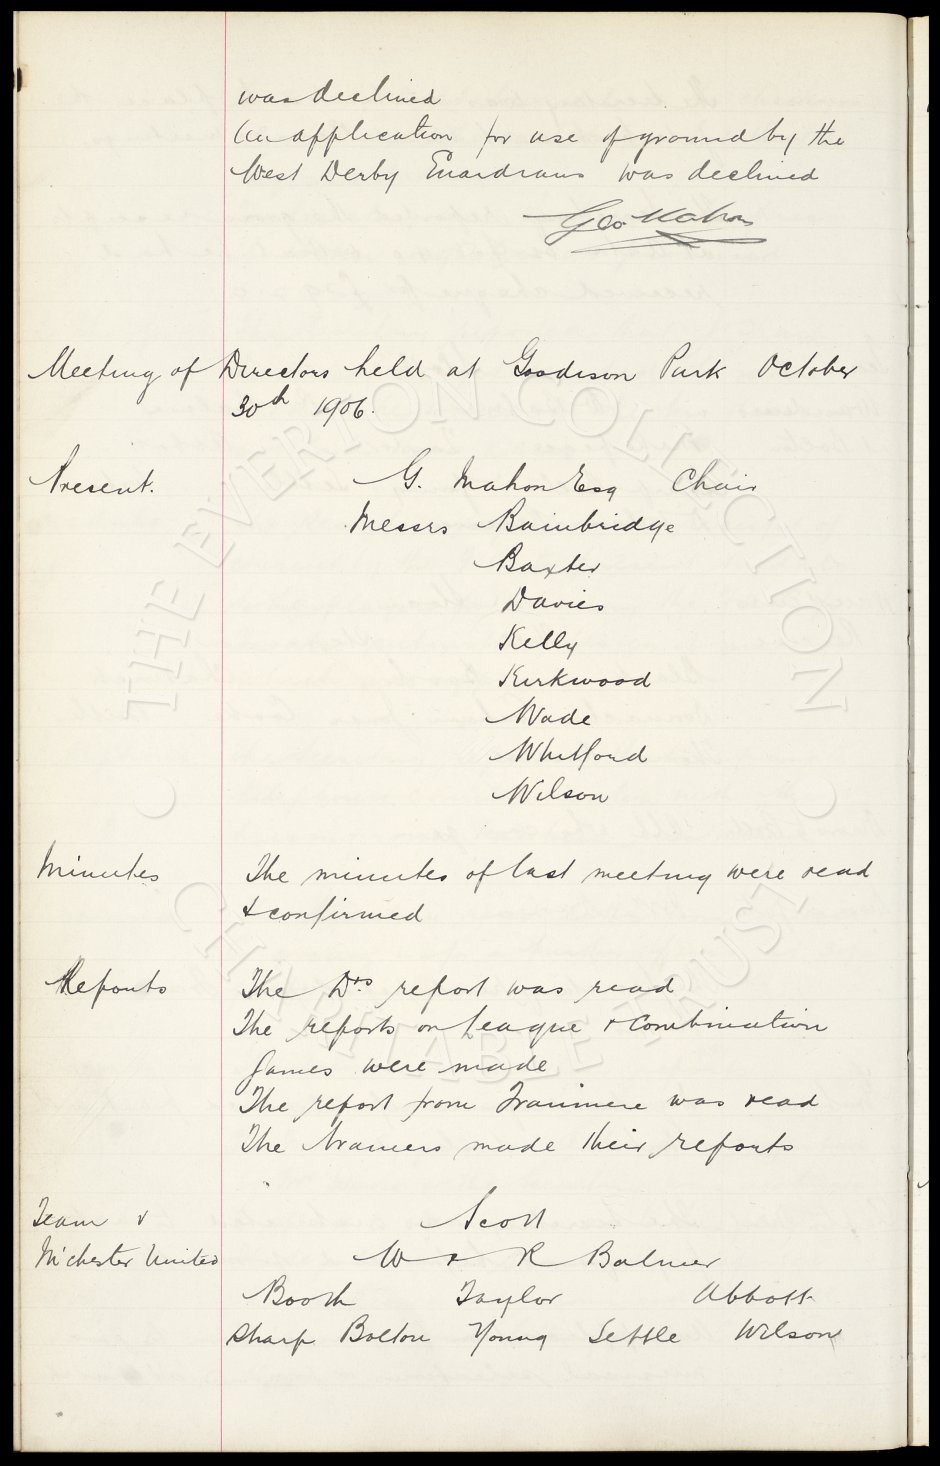 was declined
An application for use of ground by the
West Derby Guardians was declined
Geo Mahon
Meeting of Directors held at Goodison Park October
30th 1906.
Present. G. Mahon Esq Chair
Messrs Bainbridge
Baxter
Davies
Kelly
Kirkwood
Wade
Whitford
Wilson
Minutes The minutes of last meeting were read
& confirmed
Reports The Drs report was read
The reports on League & Combination
games were made
The report from Tranmere was read
The Trainers made their reports
Team v Scott
M'chester United W & R Balmer
Booth Taylor Abbott
Sharp Bolton Young Settle Wilson
THE EVERTON COLLECTION
CHARITABLE TRUST